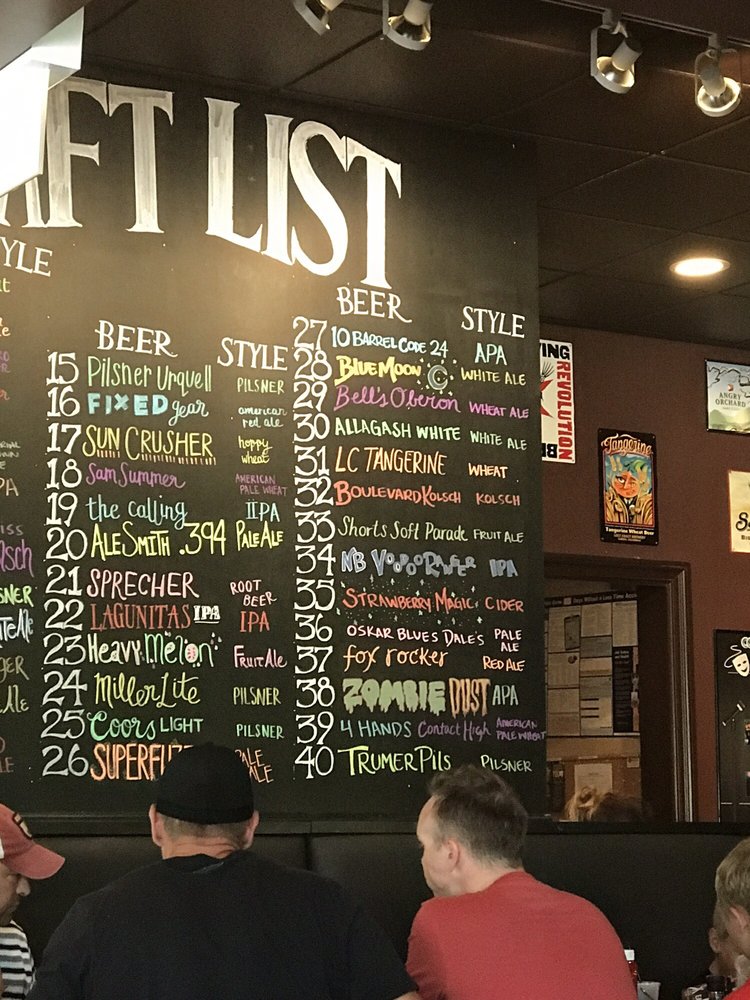 AFT LIST
YLE
BEER STYLE
15 Pilsner Urquell PILSNER
16 FIXED gear american red ale
17 SUN CRUSHER hoppy wheat
18 Sam Summer AMERICAN PALE WHEAT
19 the calling IIPA
20 ALESMITH .394 PALE ALE
21 SPRECHER ROOT BEER
22 LAGUNITAS IPA IPA
23 HEAVY MELON FRUIT ALE
24 Miller Lite PILSNER
25 Coors LIGHT PILSNER
26 SUPERFUZZ PALE ALE
BEER STYLE
27 10 BARREL CODE 24 APA
28 BLUE MOON C WHITE ALE
29 Bell's Oberon WHEAT ALE
30 ALLAGASH WHITE WHITE ALE
31 LC TANGERINE WHEAT
32 BOULEVARD KOLSCH KOLSCH
33 Shorts Soft Parade FRUIT ALE
34 NB VOODOO RANGER IPA
35 STRAWBERRY MAGIC CIDER
36 OSKAR BLUES DALE'S PALE ALE
37 fox rocker RED ALE
38 ZOMBIE DUST APA
39 4 HANDS Contact High AMERICAN PALE WHEAT
40 TRUMER PILS PILSNER
REVOLUTION
ANGRY ORCHARD
Tangerine
Tangerine Wheat Beer